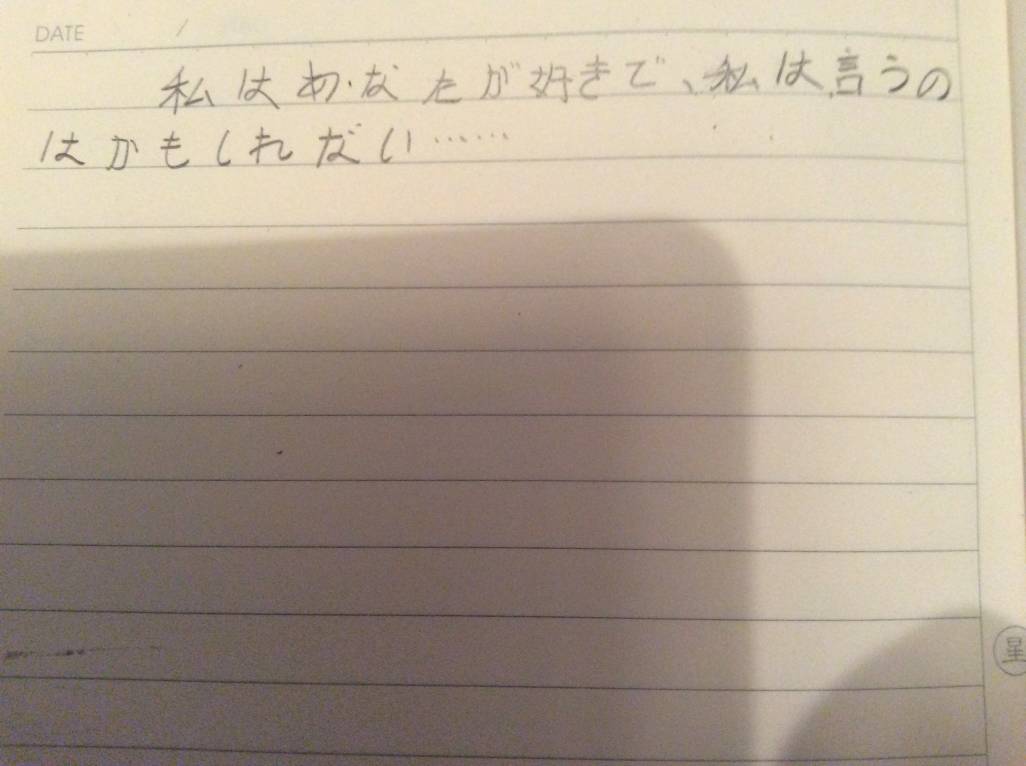 DATE /
私はあなたが好きで、私は言うの
はかもしれない……
星